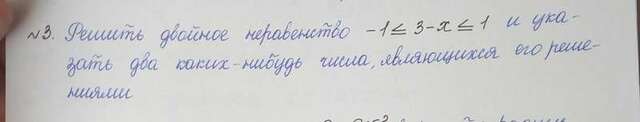 №3. Решить двойное неравенство -1 ≤ 3-x ≤ 1 и ука-
зать два каких-нибудь числа, являющихся его реше-
ниями